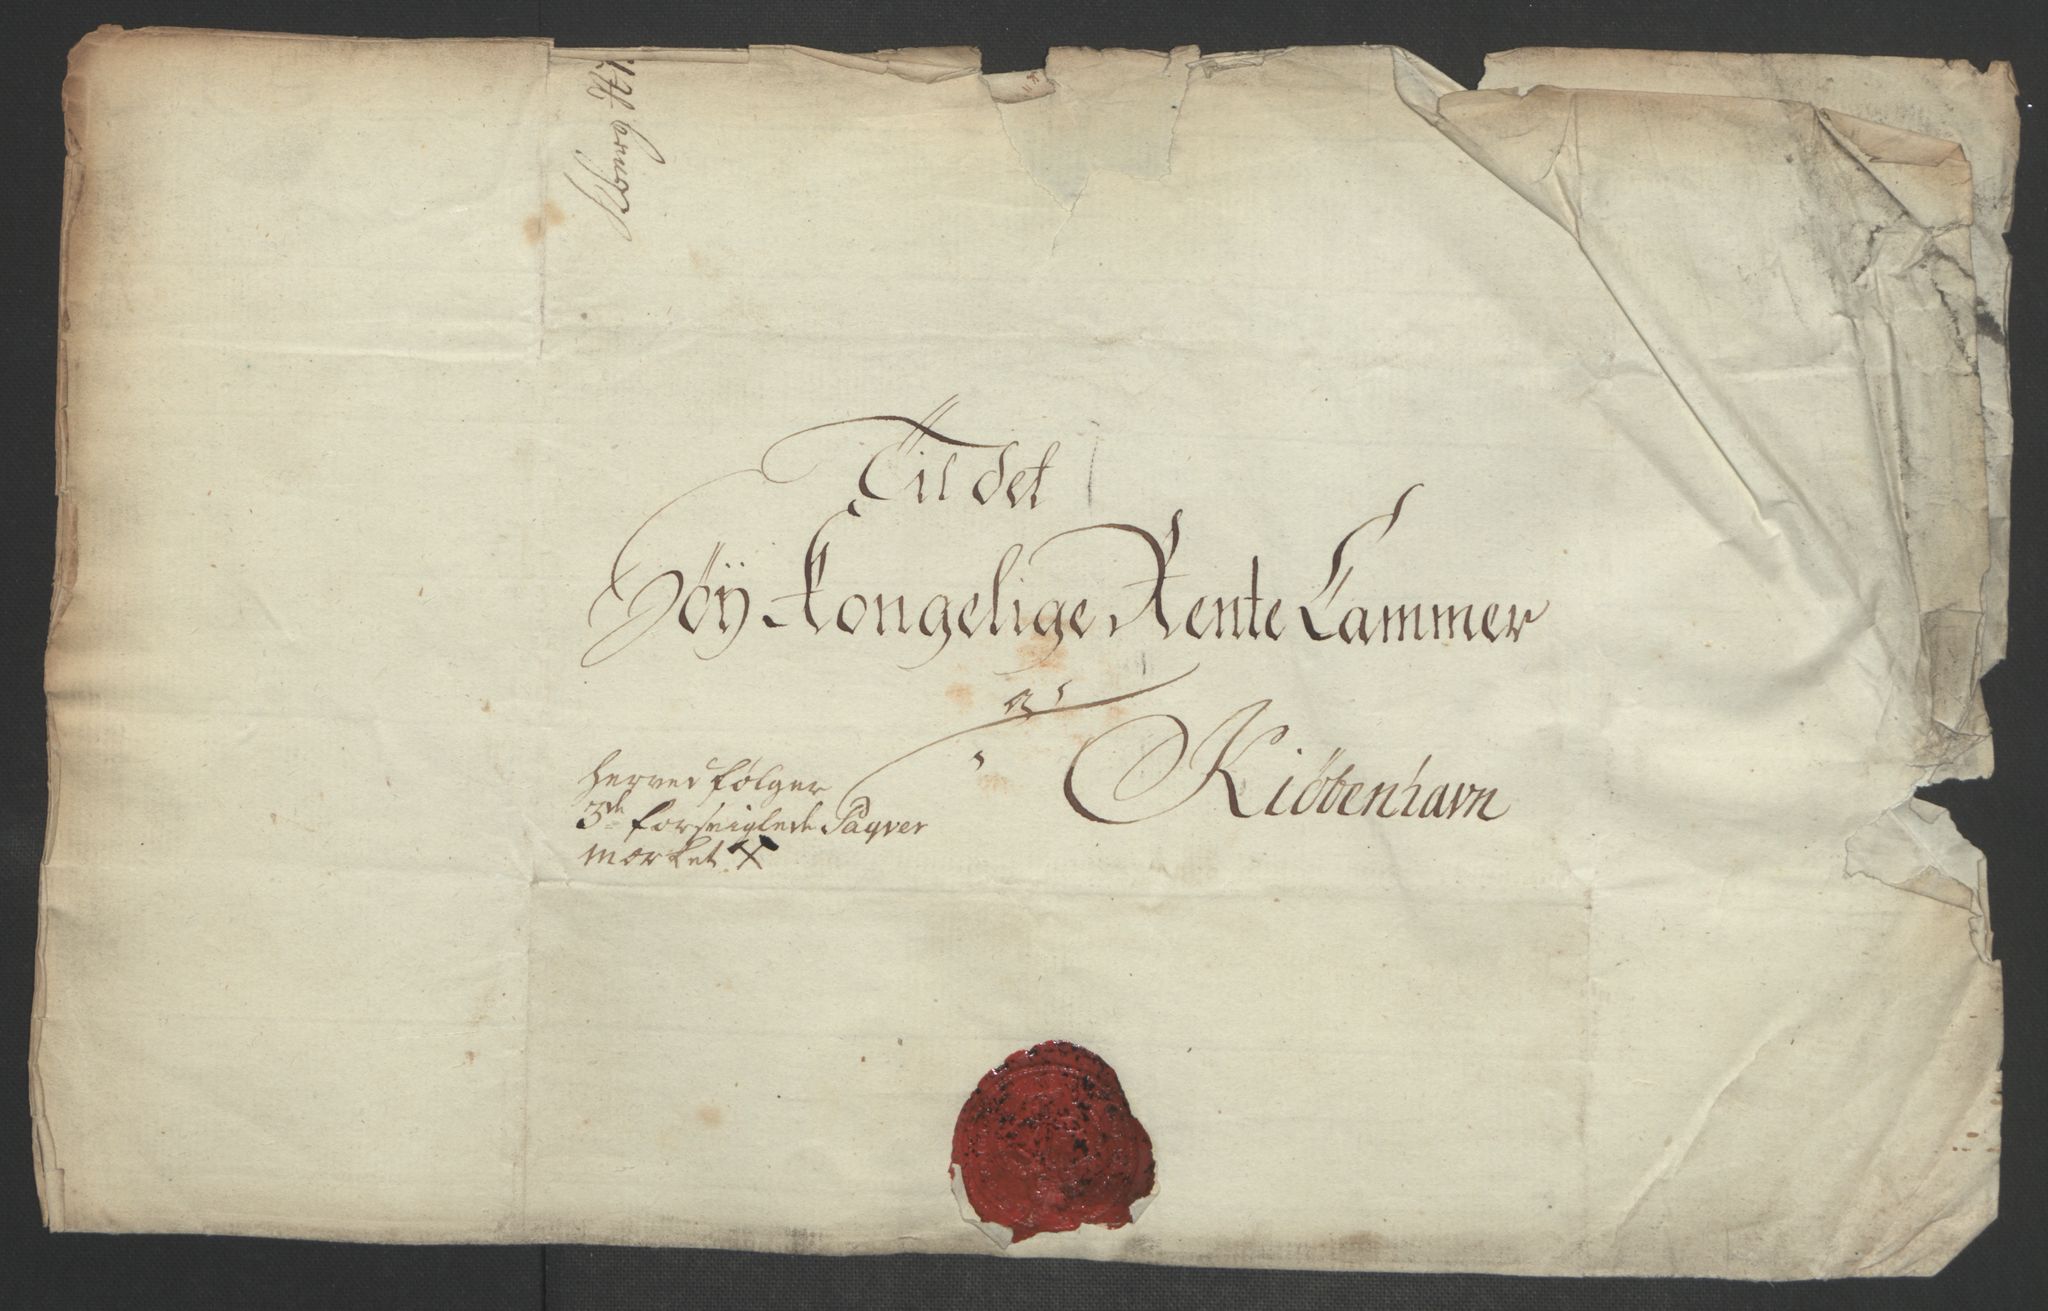 Til det
Höÿ Kongelige Rente Cammer
a
Kiöbenhavn
herved følger
3de forseiglede Paqver
mærket X